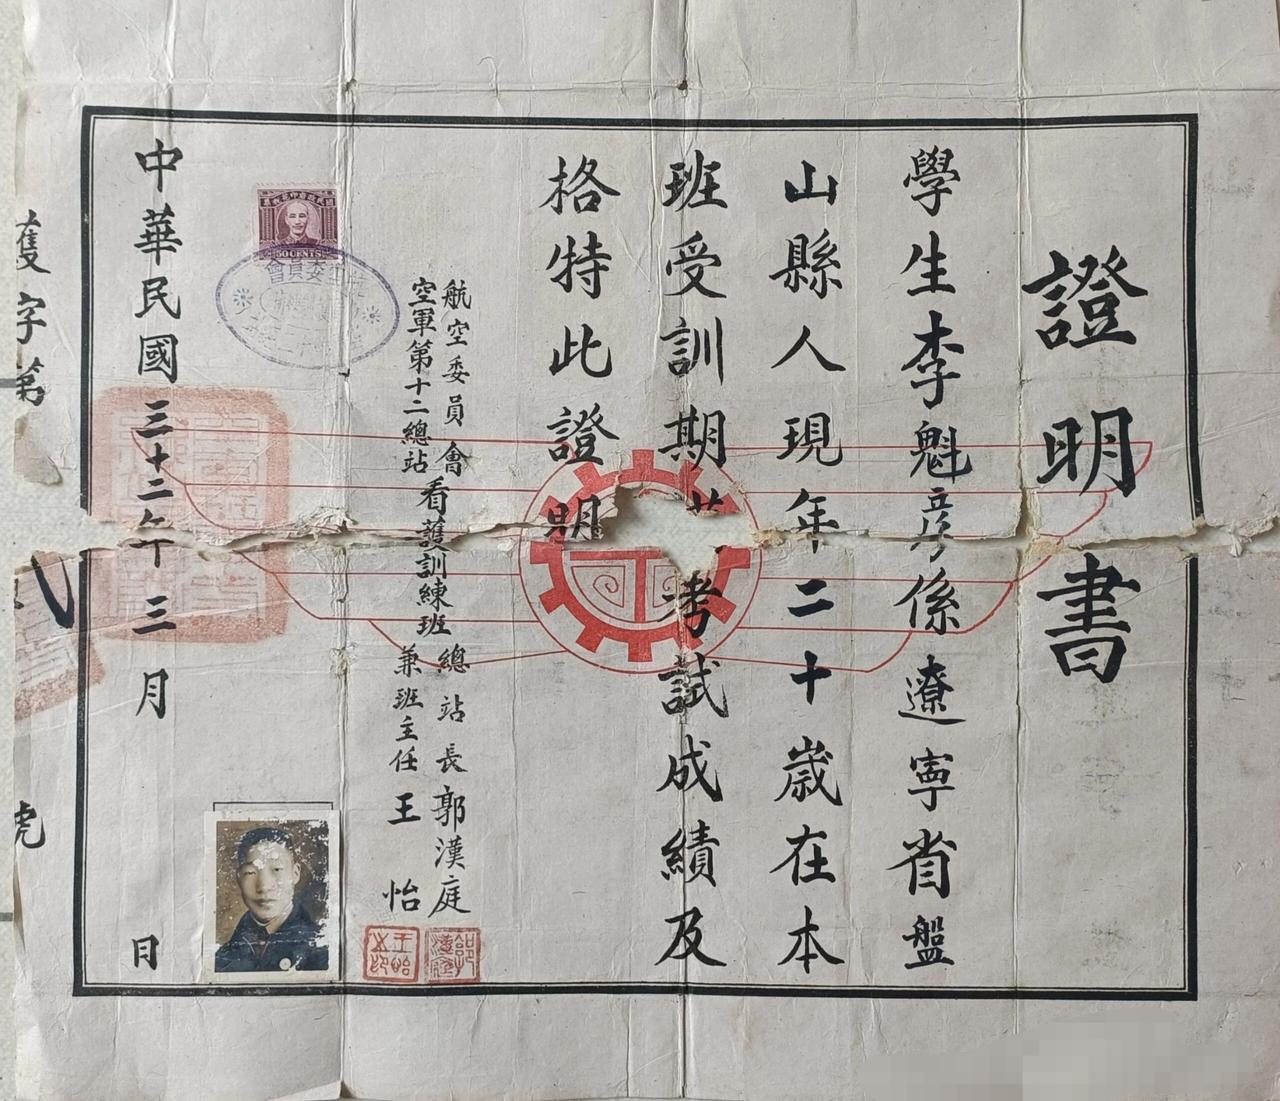 證明書
學生李魁彥係遼寧省盤
山縣人現年二十歲在本
班受訓期考試成績及
格特此證明
航空委員會
空軍第十二總站
看護訓練班
總站長郭漢庭
兼班主任王怡
50 CENTS
委員會
中華民國三十二年三月 日
護字第 號